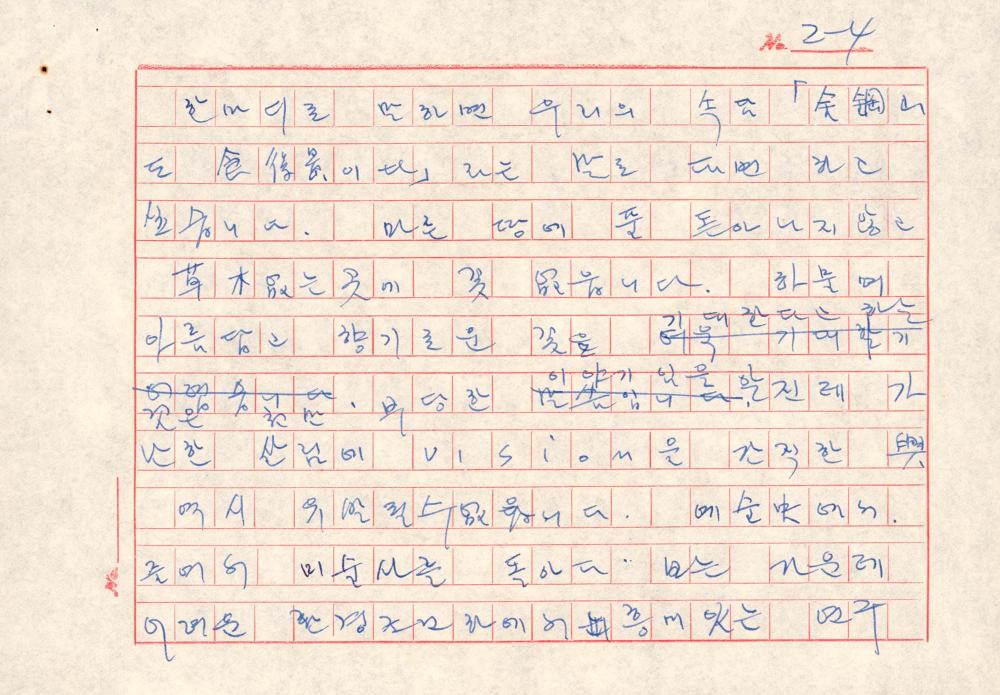 No. 2-4
한마디로 말하면 우리의 속담 「金鋼山
도 食後景이다」라는 말로 대변 하고
싶습니다. 마른 땅에 풀 돋아나지 않고
草木없는 곳에 꽃 없읍니다. 하물며
기대한다는 하는
아름답고 향기로운 꽃을 더욱 기대할기
이야기 있을
어렵습니다. 부당한 말씀입니다. 할진데 가
것은 천만
난한 살림에 vision을 간직한 
역시 위할 수없읍니다. 예술史에서.
줄여서 미술사를 돌아다 보는 가운데
어려운 환경조건하에서 흥미있는 연구
No.